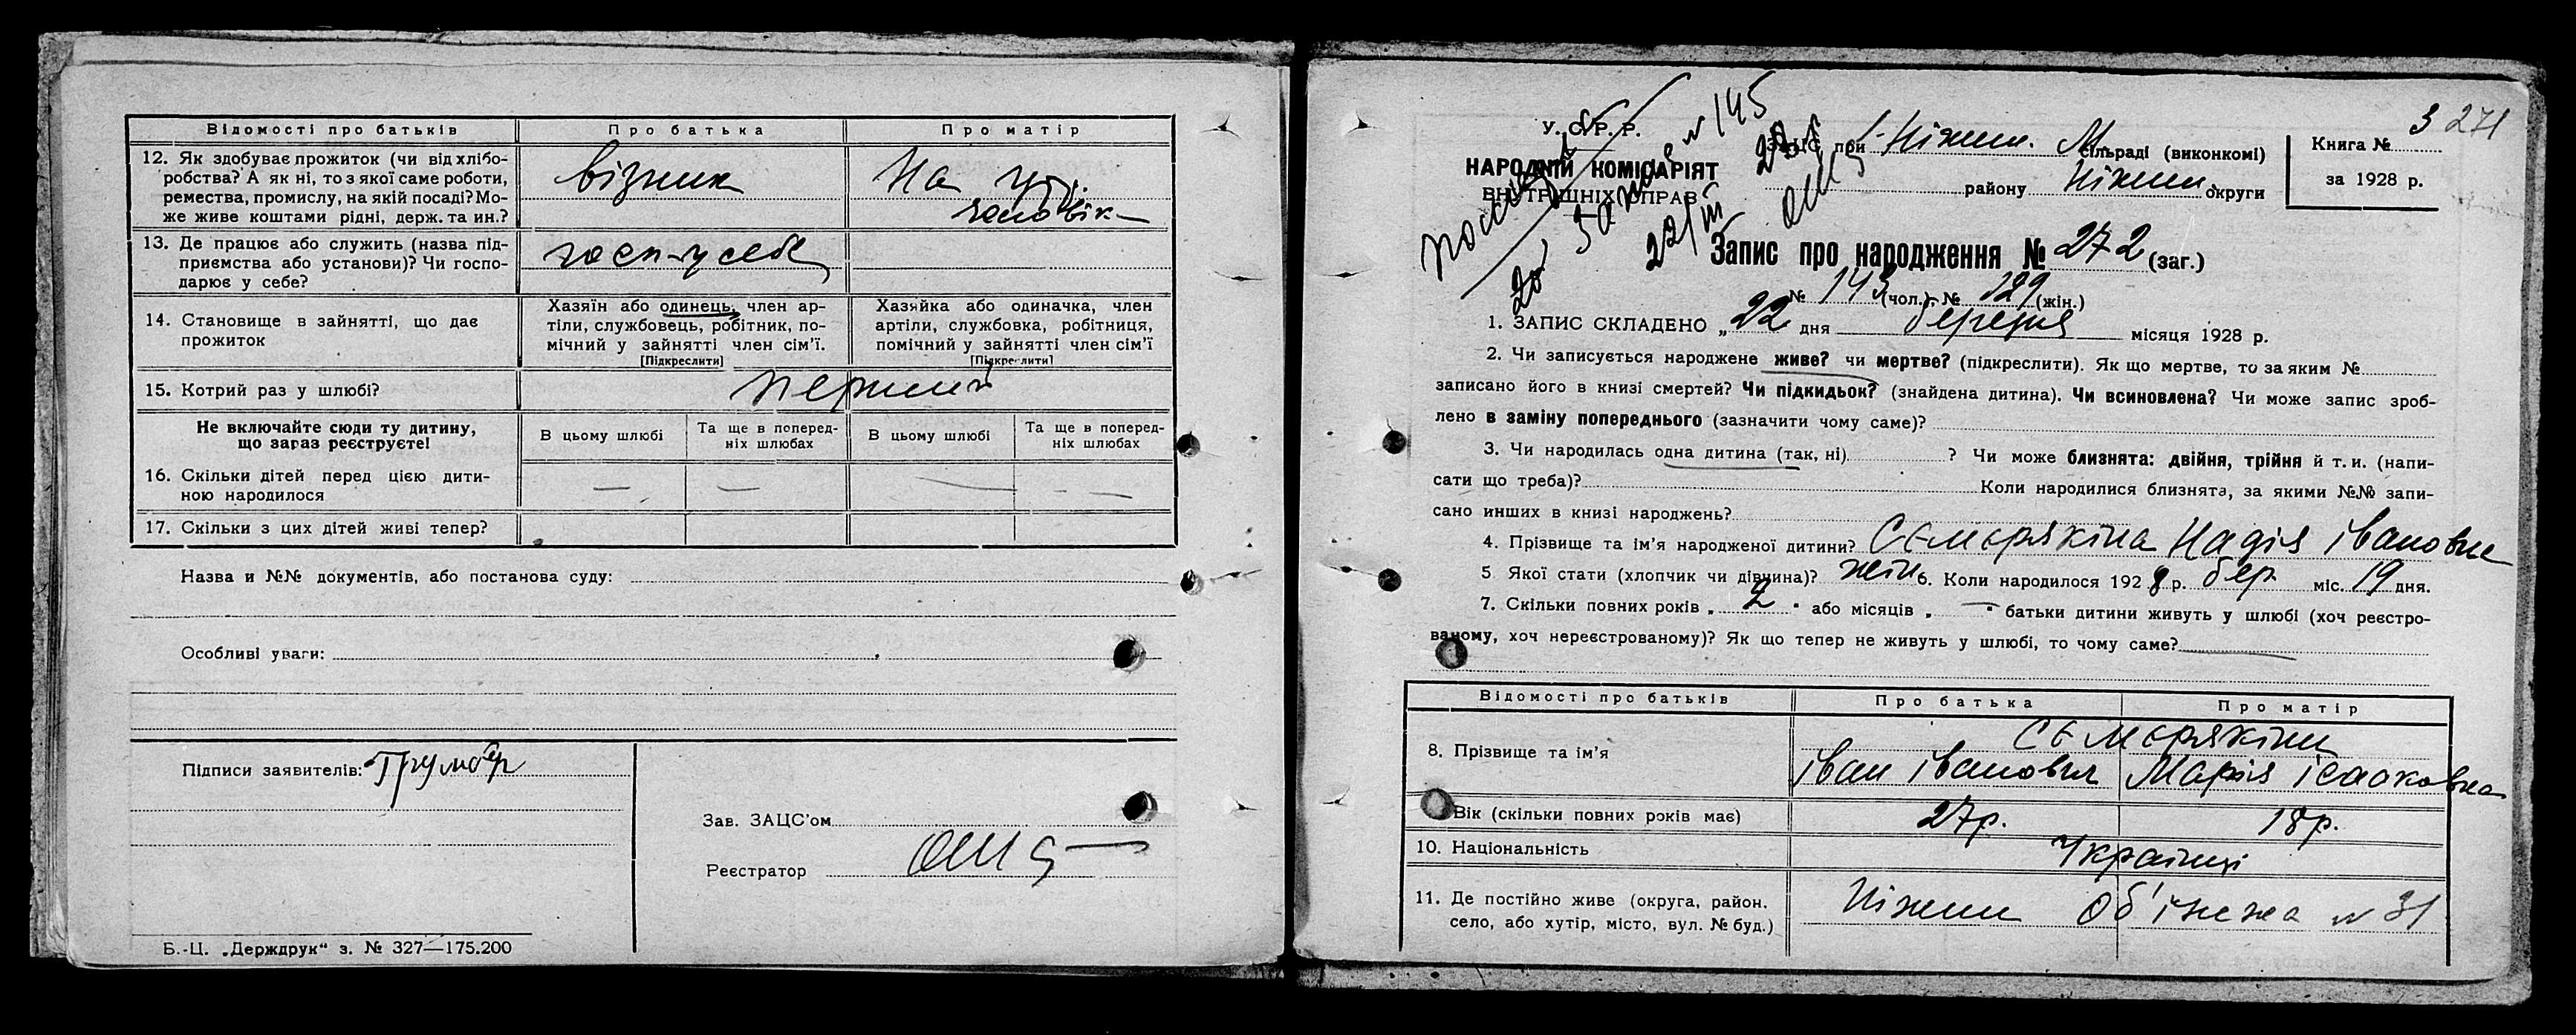 Відомості про батьків Про батька Про матір
12. Як здобуває прожиток (чи від хлібо- візник На утр.
робства? А як ні, то з якої саме роботи,
ремества, промислу, на якій посаді? Мо-
же живе коштами рідні, держ. та ин.?
13. Де працює або служить (назва під- госп-у себе
приємства або установи)? Чи госпо-
дарює у себе?
14. Становище в зайнятті, що дає
прожиток
Хазяїн або одинець, член ар-
тіли, службовець, робітник, по-
мічний у зайнятті член сім'ї.
[Підкреслити]
Хазяйка або одиначка, член
артіли, службовка, робітниця,
помічний у зайнятті член сім'ї
[Підкреслити]
15. Котрий раз у шлюбі? перший
Не включайте сюди ту дитину,
що зараз реєструєте!
В цьому шлюбі
Та ще в поперед-
ніх шлюбах
В цьому шлюбі
Та ще в поперед-
ніх шлюбах
16. Скільки дітей перед цією дити-
ною народилося — — — —
17. Скільки з цих дітей живі тепер?
Назва и №№ документів, або постанова суду:
Особливі уваги:
Підписи заявителів:
Зав. ЗАЦС'ом
Реєстратор
Б.-Ц. „Держдрук“ з. № 327—175.200
3 271
У. С. Р. Р.
НАРОДНІЙ КОМІСАРІЯТ
ВНУТРІШНІХ СПРАВ
№ 145
22/III
ЗАЦС при Ніжин. М. сільраді (виконкомі)
району Ніжин. округи
Книга №
за 1928 р.
Запис про народження № 272 (заг.)
№ 143 (чол.), № 129 (жін.)
1. ЗАПИС СКЛАДЕНО „22 дня березня місяця 1928 р.
2. Чи записується народжене живе? чи мертве? (підкреслити). Як що мертве, то за яким №
записано його в книзі смертей? Чи підкидьок? (знайдена дитина). Чи всиновлена? Чи може запис зроб-
лено в заміну попереднього (зазначити чому саме)?
3. Чи народилась одна дитина (так, ні) ? Чи може близнята: двійня, трійня й т. и. (напи-
сати що треба)? Коли народилися близнята, за якими №№ запи-
сано инших в книзі народжень?
4. Прізвище та ім'я народженої дитини? Сємєрякіна Надія Івановна
5 Якої стати (хлопчик чи дівчина)? жін 6. Коли народилося 1928 р. бер. міс. 19 дня.
7. Скільки повних років „ 2 “ або місяців „ — “ батьки дитини живуть у шлюбі (хоч реєстро-
ваному, хоч нереєстрованому)? Як що тепер не живуть у шлюбі, то чому саме?
Відомості про батьків Про батька Про матір
Сємєрякіни
8. Прізвище та ім'я Іван Іванович Марія Ісааковна
Вік (скільки повних років має) 27р. 18р.
10. Національність Українці
11. Де постійно живе (округа, район, Ніжин Об'їнжа № 31
село, або хутір, місто, вул. № буд.)